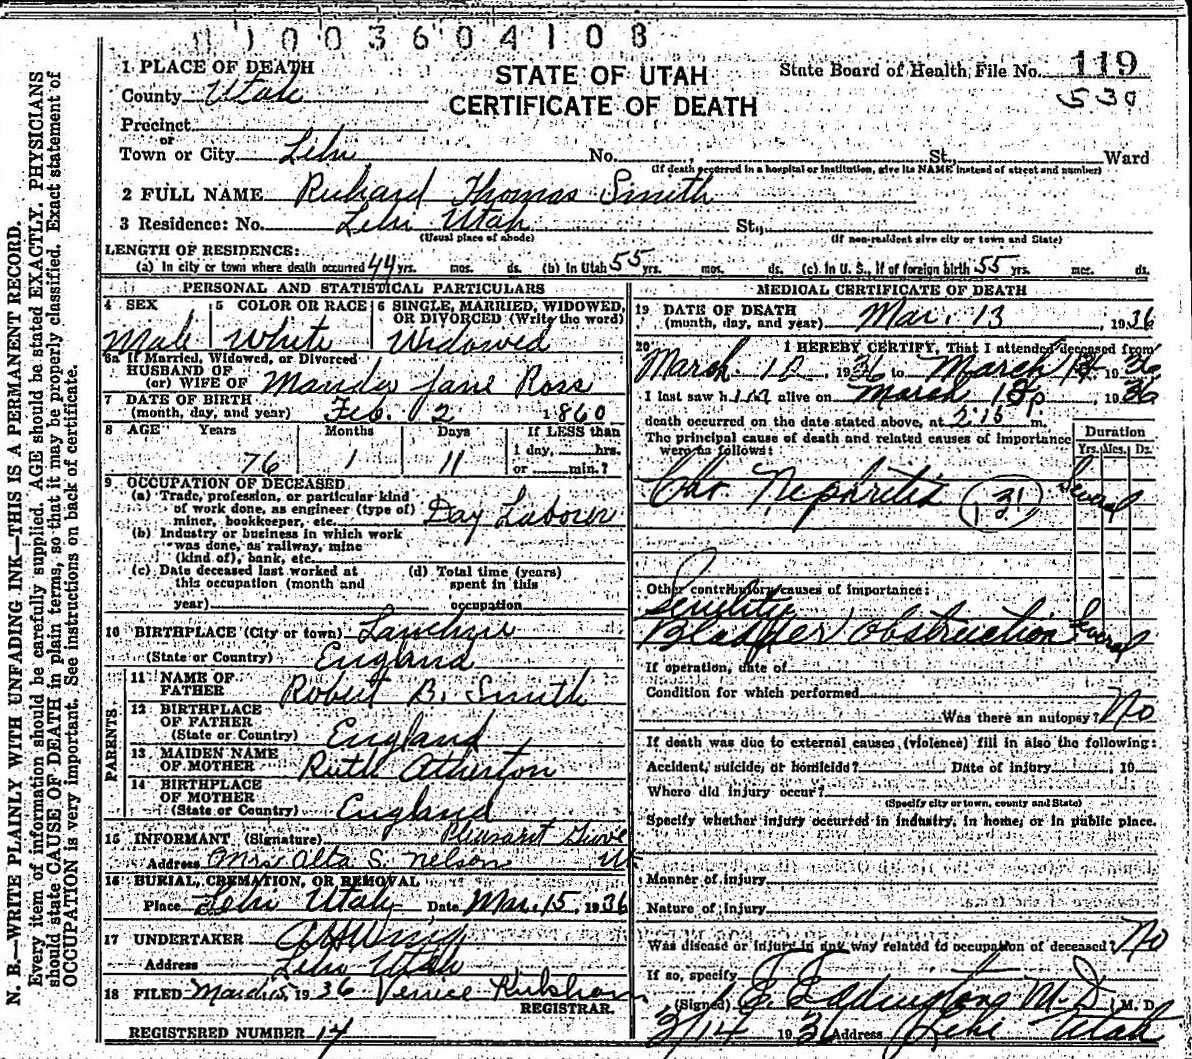 11003604108
STATE OF UTAH
CERTIFICATE OF DEATH
State Board of Health, File No. 119
530
1 PLACE OF DEATH
County Utah
Precinct
or
Town or City Lehi No. , St., Ward
(If death occurred in a hospital or institution, give its NAME instead of street and number)
2 FULL NAME Richard Thomas Smith
3 Residence: No. Lehi Utah St.,
(Usual place of abode) (If non-resident give city or town and State)
LENGTH OF RESIDENCE:
(a) In city or town where death occurred 44 yrs. mos. ds. (b) In Utah 55 yrs. mos. ds. (c) In U. S., if of foreign birth 55 yrs. mos. ds.
PERSONAL AND STATISTICAL PARTICULARS
4 SEX
Male
5 COLOR OR RACE
White
6 SINGLE, MARRIED, WIDOWED,
OR DIVORCED (Write the word)
Widowed
6a If Married, Widowed, or Divorced
HUSBAND OF
(or) WIFE OF Jane Ross
7 DATE OF BIRTH
(month, day, and year) Feb. 2 1860
8 AGE Years Months Days If LESS than
1 day, hrs.
76 1 11 or min.?
9 OCCUPATION OF DECEASED
(a) Trade, profession, or particular kind
of work done, as engineer (type of)
miner, bookkeeper, etc. Day Laborer
(b) Industry or business in which work
was done, as railway, mine
(kind of), bank, etc.
(c) Date deceased last worked at
this occupation (month and
year)
(d) Total time (years)
spent in this
occupation
10 BIRTHPLACE (City or town)
(State or Country) England
PARENTS
11 NAME OF
FATHER Robert B. Smith
12 BIRTHPLACE
OF FATHER
(State or Country) England
13 MAIDEN NAME
OF MOTHER Ruth Atherton
14 BIRTHPLACE
OF MOTHER
(State or Country) England
15 INFORMANT (Signature) Pleasant Grove
Address Mrs Alta S. Nelson Ut
16 BURIAL, CREMATION, OR REMOVAL
Place Lehi Utah Date Mar. 15, 1936
17 UNDERTAKER
Address Lehi Utah
18 FILED March 15, 1936 Venice
REGISTRAR.
REGISTERED NUMBER 14
MEDICAL CERTIFICATE OF DEATH
19 DATE OF DEATH
(month, day, and year) Mar. 13, 1936
20 I HEREBY CERTIFY, That I attended deceased from
March 12 1936 to March 1936
I last saw him alive on March 1936
death occurred on the date stated above, at 2:15 p m.
The principal cause of death and related causes of importance
were as follows:
Duration
Yrs. Mos. Ds.
Chr. Nephritis 131 Several
Other contributory causes of importance:
Senility
Bladder obstruction Several
If operation, date of
Condition for which performed
Was there an autopsy? No
If death was due to external causes (violence) fill in also the following:
Accident, suicide, or homicide? Date of injury , 19
Where did injury occur?
(Specify city or town, county and State)
Specify whether injury occurred in industry, in home, or in public place.
Manner of injury
Nature of injury
Was disease or injury in any way related to occupation of deceased? No
If so, specify
(Signed) E. Eddington M.D., M. D.
3/14 1936 Address Lehi Utah
N. B.—WRITE PLAINLY WITH UNFADING INK—THIS IS A PERMANENT RECORD.
Every item of information should be carefully supplied. AGE should be stated EXACTLY. PHYSICIANS
should state CAUSE OF DEATH in plain terms, so that it may be properly classified. Exact statement of
OCCUPATION is very important. See instructions on back of certificate.